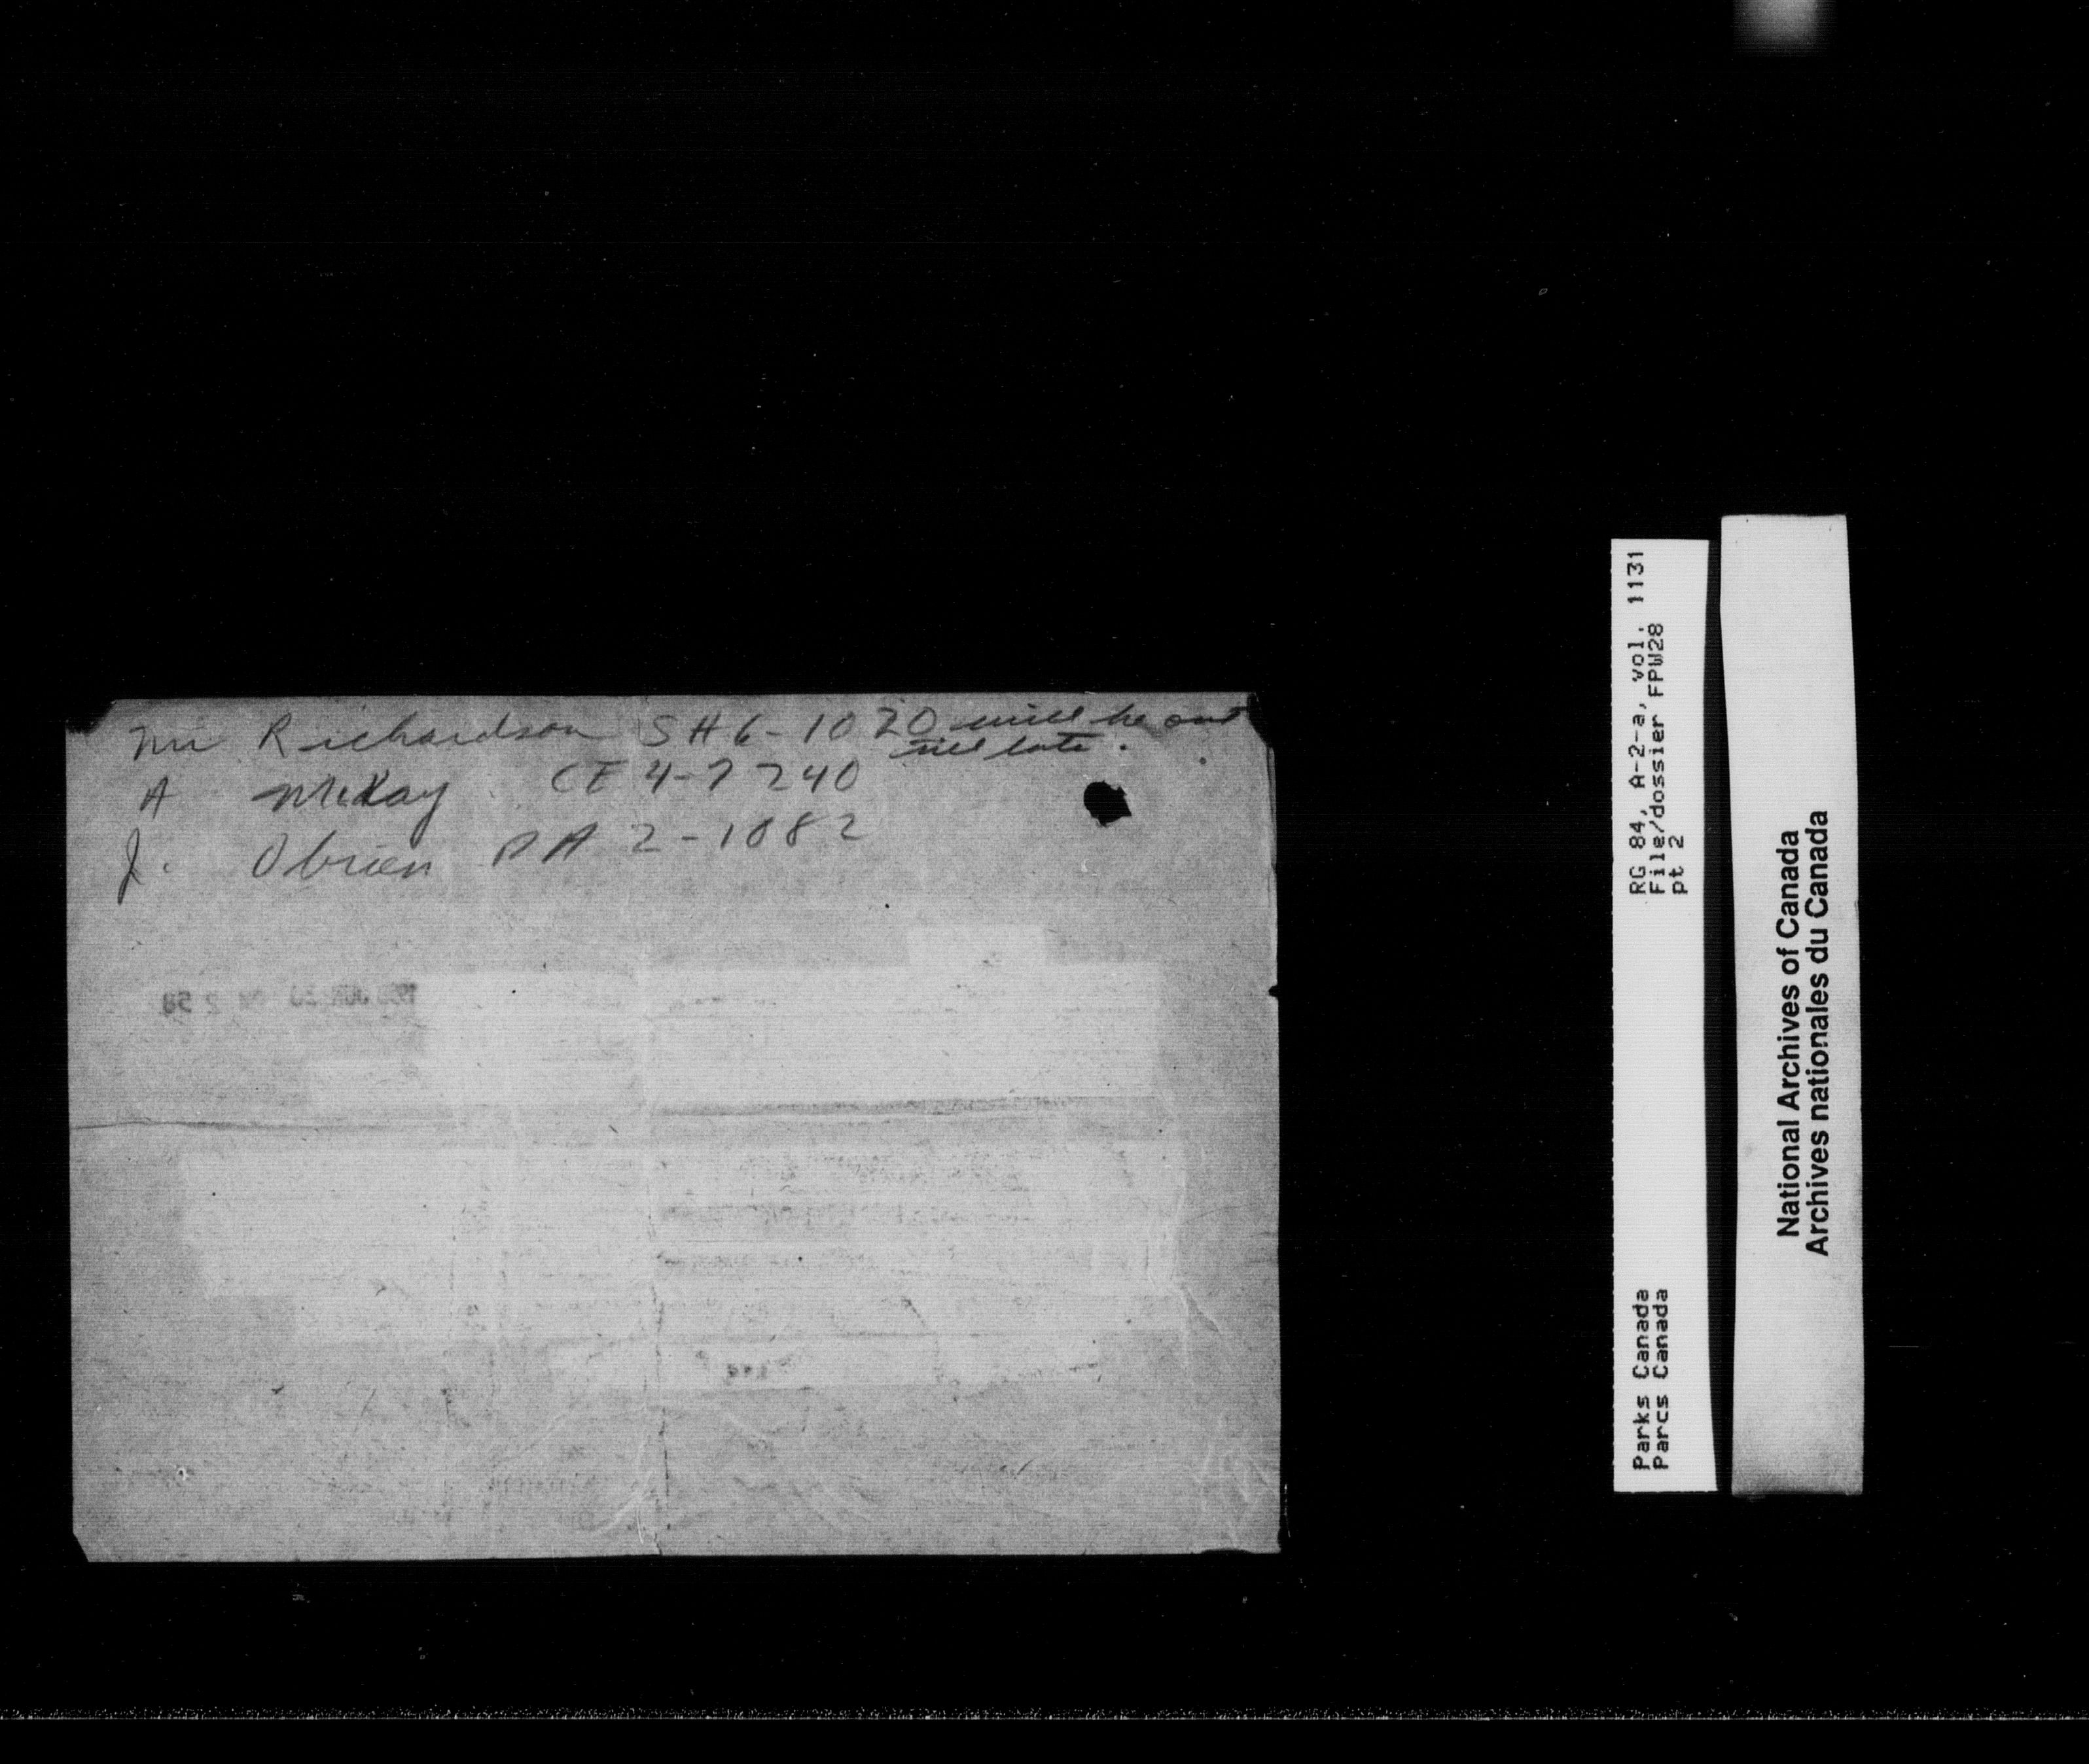 Mr Richardson SH6-1020 will be out
till late.
A McKay CE 4-7240
J. Obrien PA 2-1082
RG 84, A-2-a, vol. 1131
File/dossier FPW28
pt 2
Parks Canada
Parcs Canada
National Archives of Canada
Archives nationales du Canada